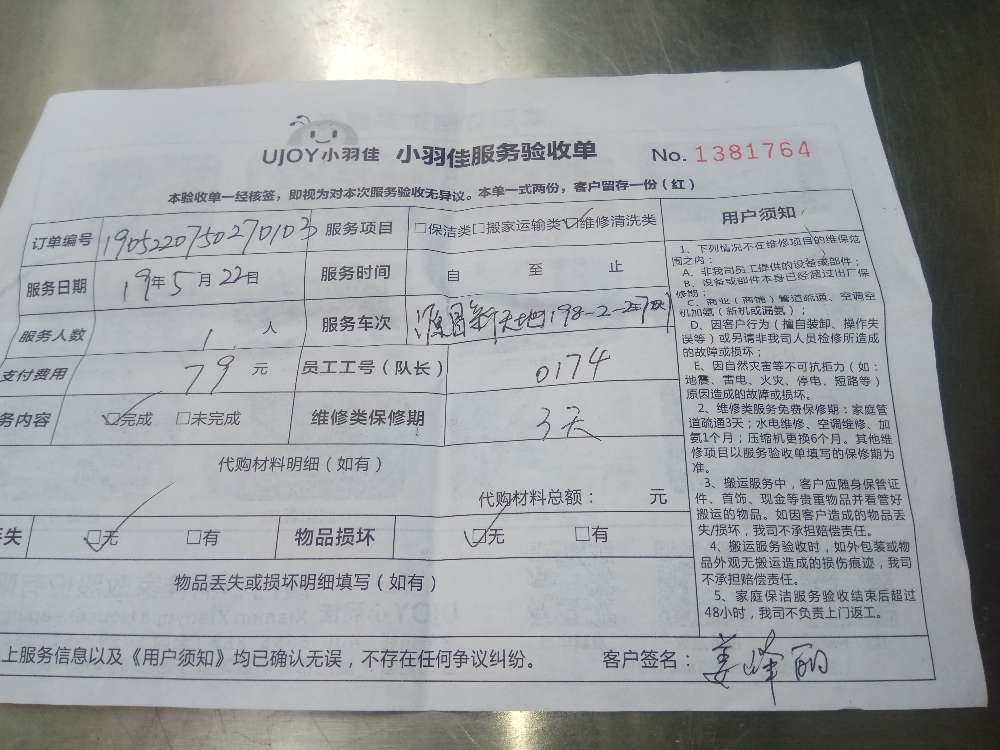 UJOY小羽佳 小羽佳服务验收单 No. 1381764
本验收单一经核签，即视为对本次服务验收无异议。本单一式两份，客户留存一份（红）
订单编号 1905220750270103 服务项目 □保洁类□搬家运输类☑维修清洗类
服务日期 19年5月22日 服务时间 自 至 止
服务人数 1 人 服务车次 源昌新天地198-2-2
支付费用 79 元 员工工号（队长） 0174
务内容 ☑完成 □未完成 维修类保修期 3天
代购材料明细（如有）
代购材料总额： 元
失 ☑无 □有 物品损坏 ☑无 □有
物品丢失或损坏明细填写（如有）
上服务信息以及《用户须知》均已确认无误，不存在任何争议纠纷。 客户签名：姜峰丽
用户须知
1、下列情况不在维修项目的维保范
围之内：
A、非我司员工提供的设备或部件；
B、设备或部件本身已经超过出厂保
修期；
C、商业（商铺）管道疏通、空调空
机加氨（新机或漏氨）；
D、因客户行为（擅自装卸、操作失
误等）或另请非我司人员检修所造成
的故障或损坏；
E、因自然灾害等不可抗拒力（如：
地震、雷电、火灾、停电、短路等）
原因造成的故障或损坏。
2、维修类服务免费保修期：家庭管
道疏通3天；水电维修、空调维修、加
氨1个月；压缩机更换6个月。其他维
修项目以服务验收单填写的保修期为
准。
3、搬运服务中，客户应随身保管证
件、首饰、现金等贵重物品并看管好
搬运的物品。如因客户造成的物品丢
失/损坏，我司不承担赔偿责任。
4、搬运服务验收时，如外包装或物
品外观无搬运造成的损伤痕迹，我司
不承担赔偿责任。
5、家庭保洁服务验收结束后超过
48小时，我司不负责上门返工。